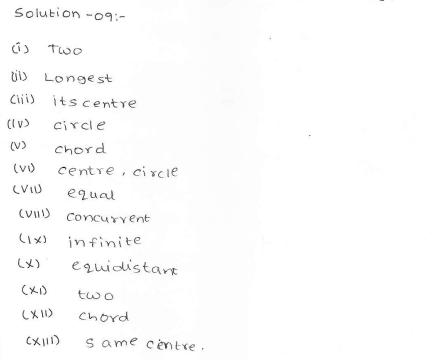 Solution -09:-
(i) Two
(ii) Longest
(iii) its centre
(iv) circle
(v) chord
(vi) centre, circle
(vii) equal
(viii) concurrent
(ix) infinite
(x) equidistant
(xi) two
(xii) chord
(xiii) same centre.